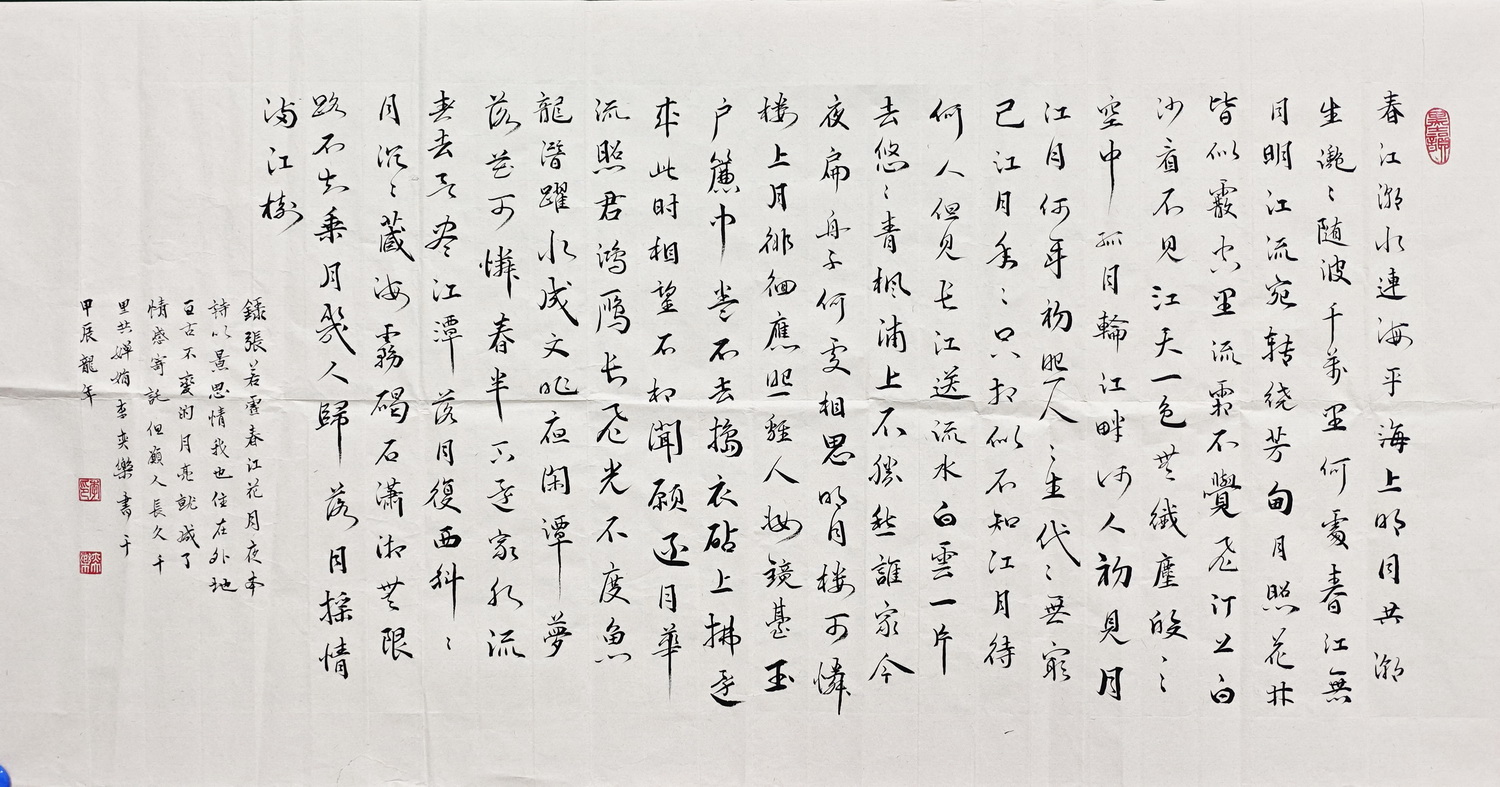 春江潮水連海平海上明月共潮
生灧〻随波千萬里何處春江無
月明江流宛转绕芳甸月照花林
皆似霰空里流霜不覺飛汀上白
沙看不見江天一色無纖塵皎〻
空中孤月輪江畔何人初見月
江月何年初照人人〻生代〻無窮
已江月年〻只相似不知江月待
何人但見长江送流水白雲一片
去悠〻青枫浦上不勝愁誰家今
夜扁舟子何處相思明月楼可憐
楼上月徘徊應照離人妝鏡臺玉
户簾中卷不去搗衣砧上拂還
来此时相望不相聞願逐月華
流照君鴻雁长飛光不度魚
龍潛躍水成文昨夜閑潭夢
落花可憐春半不還家江水流
春去欲盡江潭落月復西斜〻
月沉〻藏海霧碣石瀟湘無限
路不知乘月幾人歸落月摇情
满江樹
錄張若虛春江花月夜本
詩以景思情我也住在外地
亘古不變的月亮就成了
情感寄託但願人長久千
里共嬋娟李奕樂書于
甲辰龍年